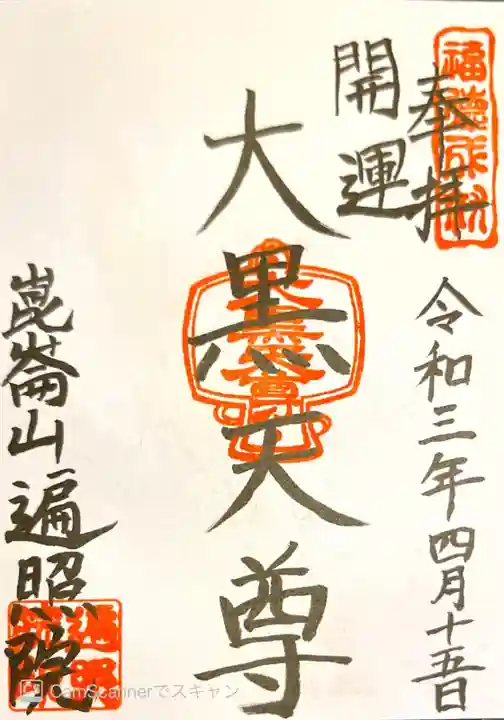 奉拝
令和三年四月十五日
開運
大黒天尊
崑崙山遍照院
CamScannerでスキャン